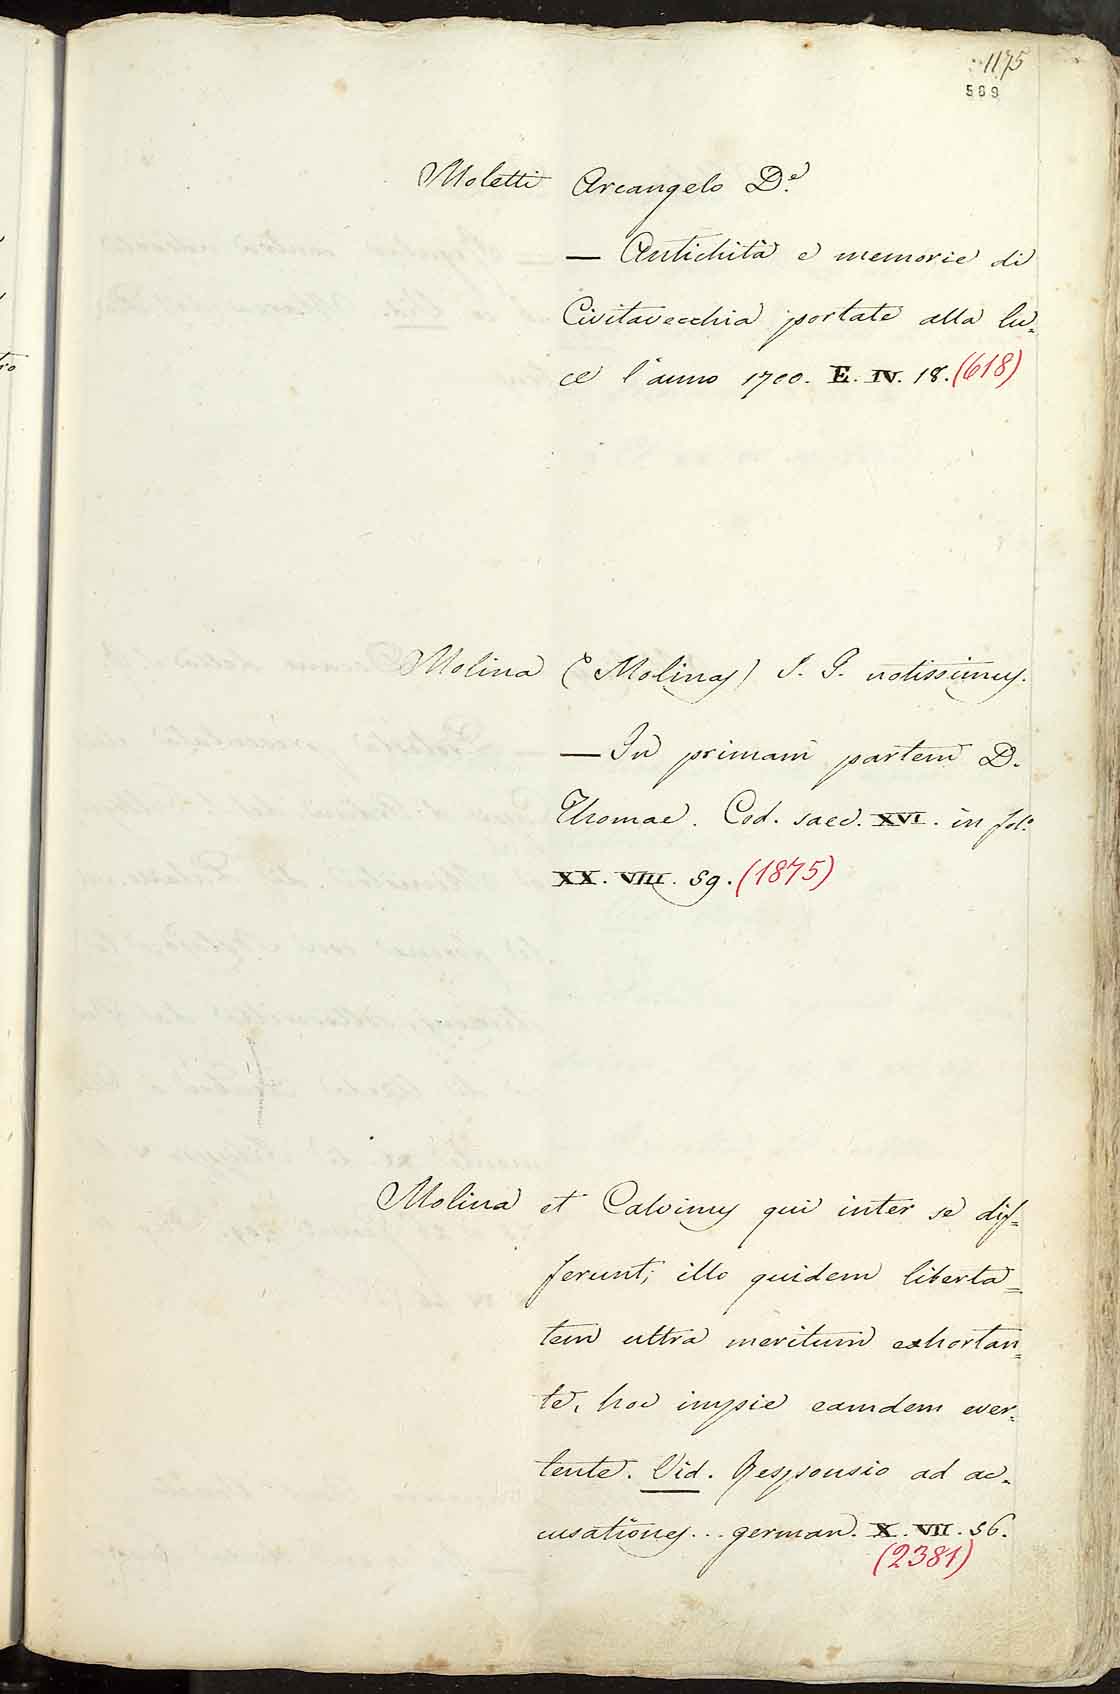 1175
589
Moletti Arcangelo D.e
— Antichità e memorie di
Civitavecchia portate alla lu-
ce l'anno 1700. E. IV. 18. (618)
Molina (Molinas) S. G. notissimus.
— In primam partem D.
Thomae. Cod. saec. XVI. in fol.
XX. VIII. 59. (1875)
Molina et Calvinus qui inter se dif=
ferunt; illo quidem liberta=
tem ultra meritum exhortan=
te, hoc impie eamdem ever-
tente. Vid. Responsio ad ac-
cusationes... german. X. VII. 56.
(2381)